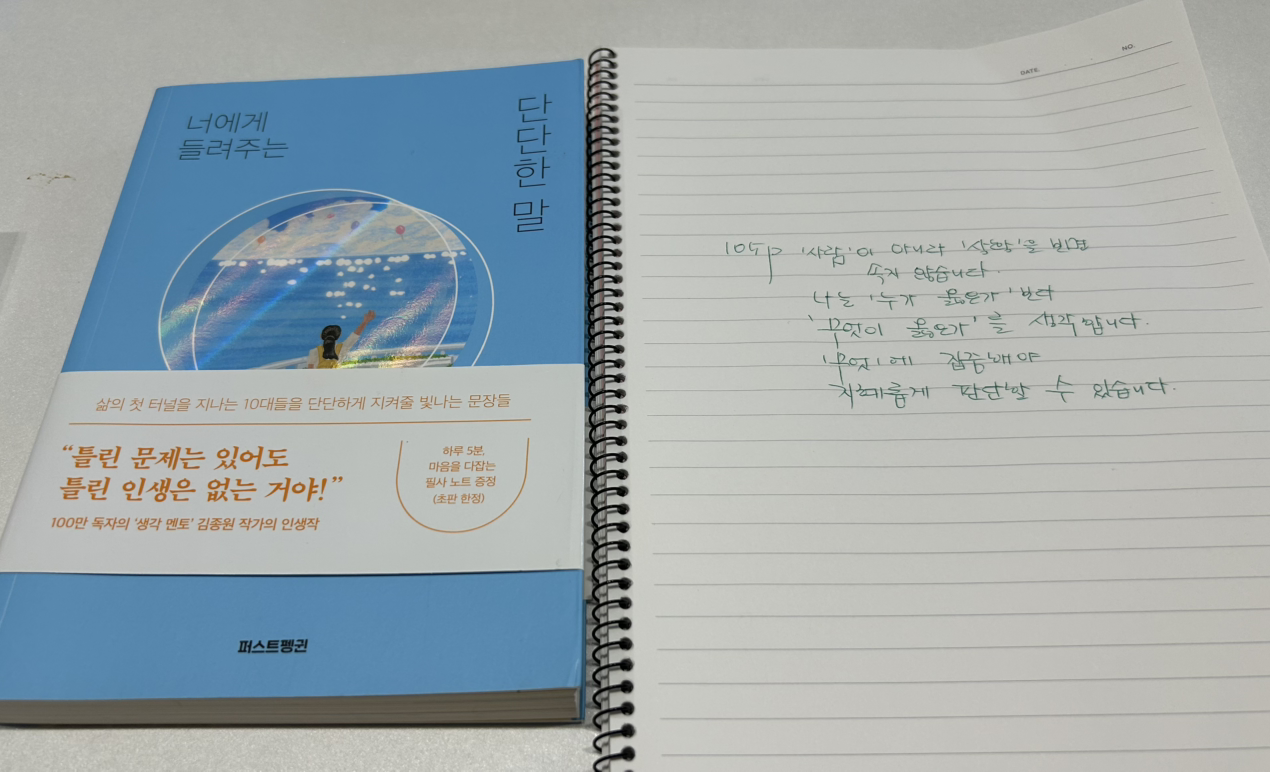 너에게
들려주는
단단한 말
삶의 첫 터널을 지나는 10대들을 단단하게 지켜줄 빛나는 문장들
“틀린 문제는 있어도
틀린 인생은 없는 거야!”
100만 독자의 ‘생각 멘토’ 김종원 작가의 인생작
하루 5분,
마음을 다잡는
필사 노트 증정
(초판 한정)
퍼스트펭귄
DATE.
NO.
105p '사람'이 아니라 '상황'을 보면
속지 않습니다.
나는 '누가 옳은가' 보다
'무엇이 옳은가'를 생각합니다.
'무엇'에 집중해야
지혜롭게 판단할 수 있습니다.